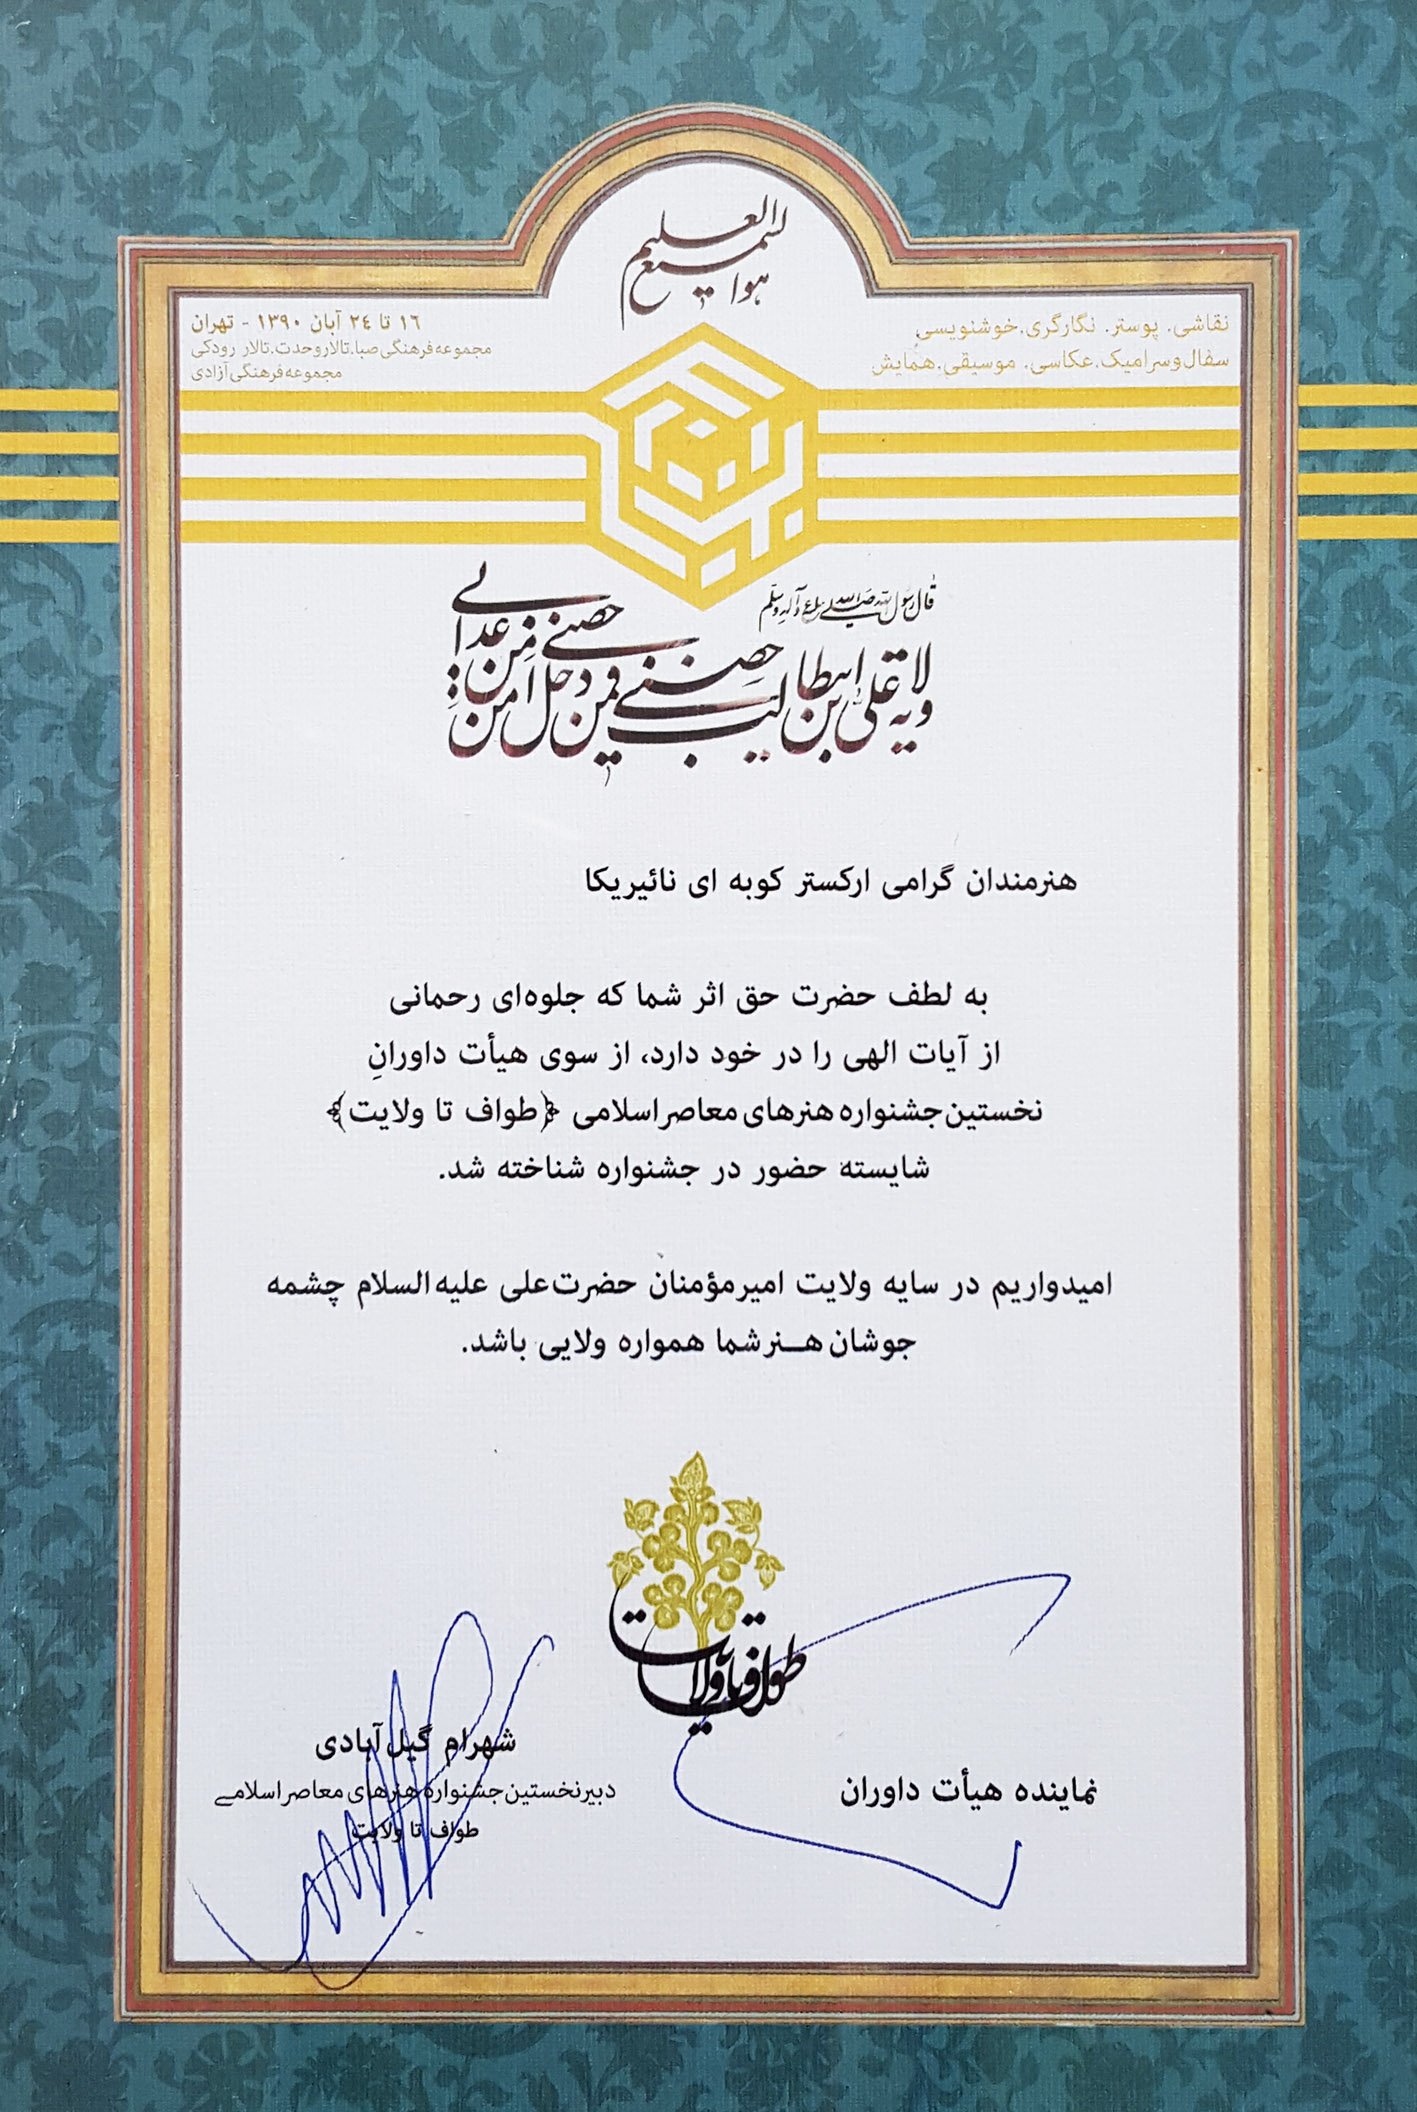 هو السمیع العلیم
نقاشی. پوستر. نگارگری. خوشنویسی
سفال و سرامیک. عکاسی. موسیقی. همایش
۱۶ تا ۲۴ آبان ۱۳۹۰ - تهران
مجموعه فرهنگی صبا. تالار وحدت. تالار رودکی
مجموعه فرهنگی آزادی
قال رسول الله صلی الله علیه و آله و سلم
ولایة علی بن ابیطالب حصنی فمن دخل حصنی امن من عذابی
هنرمندان گرامی ارکستر کوبه ای نائیریکا
به لطف حضرت حق اثر شما که جلوه‌ای رحمانی
از آیات الهی را در خود دارد، از سوی هیأت داورانِ
نخستین جشنواره هنرهای معاصر اسلامی ﴿طواف تا ولایت﴾
شایسته حضور در جشنواره شناخته شد.
امیدواریم در سایه ولایت امیرمؤمنان حضرت علی علیه السلام چشمه
جوشان هنر شما همواره ولایی باشد.
طواف تا ولایت
نماینده هیأت داوران
شهرام گیل آبادی
دبیر نخستین جشنواره هنرهای معاصر اسلامی
طواف تا ولایت